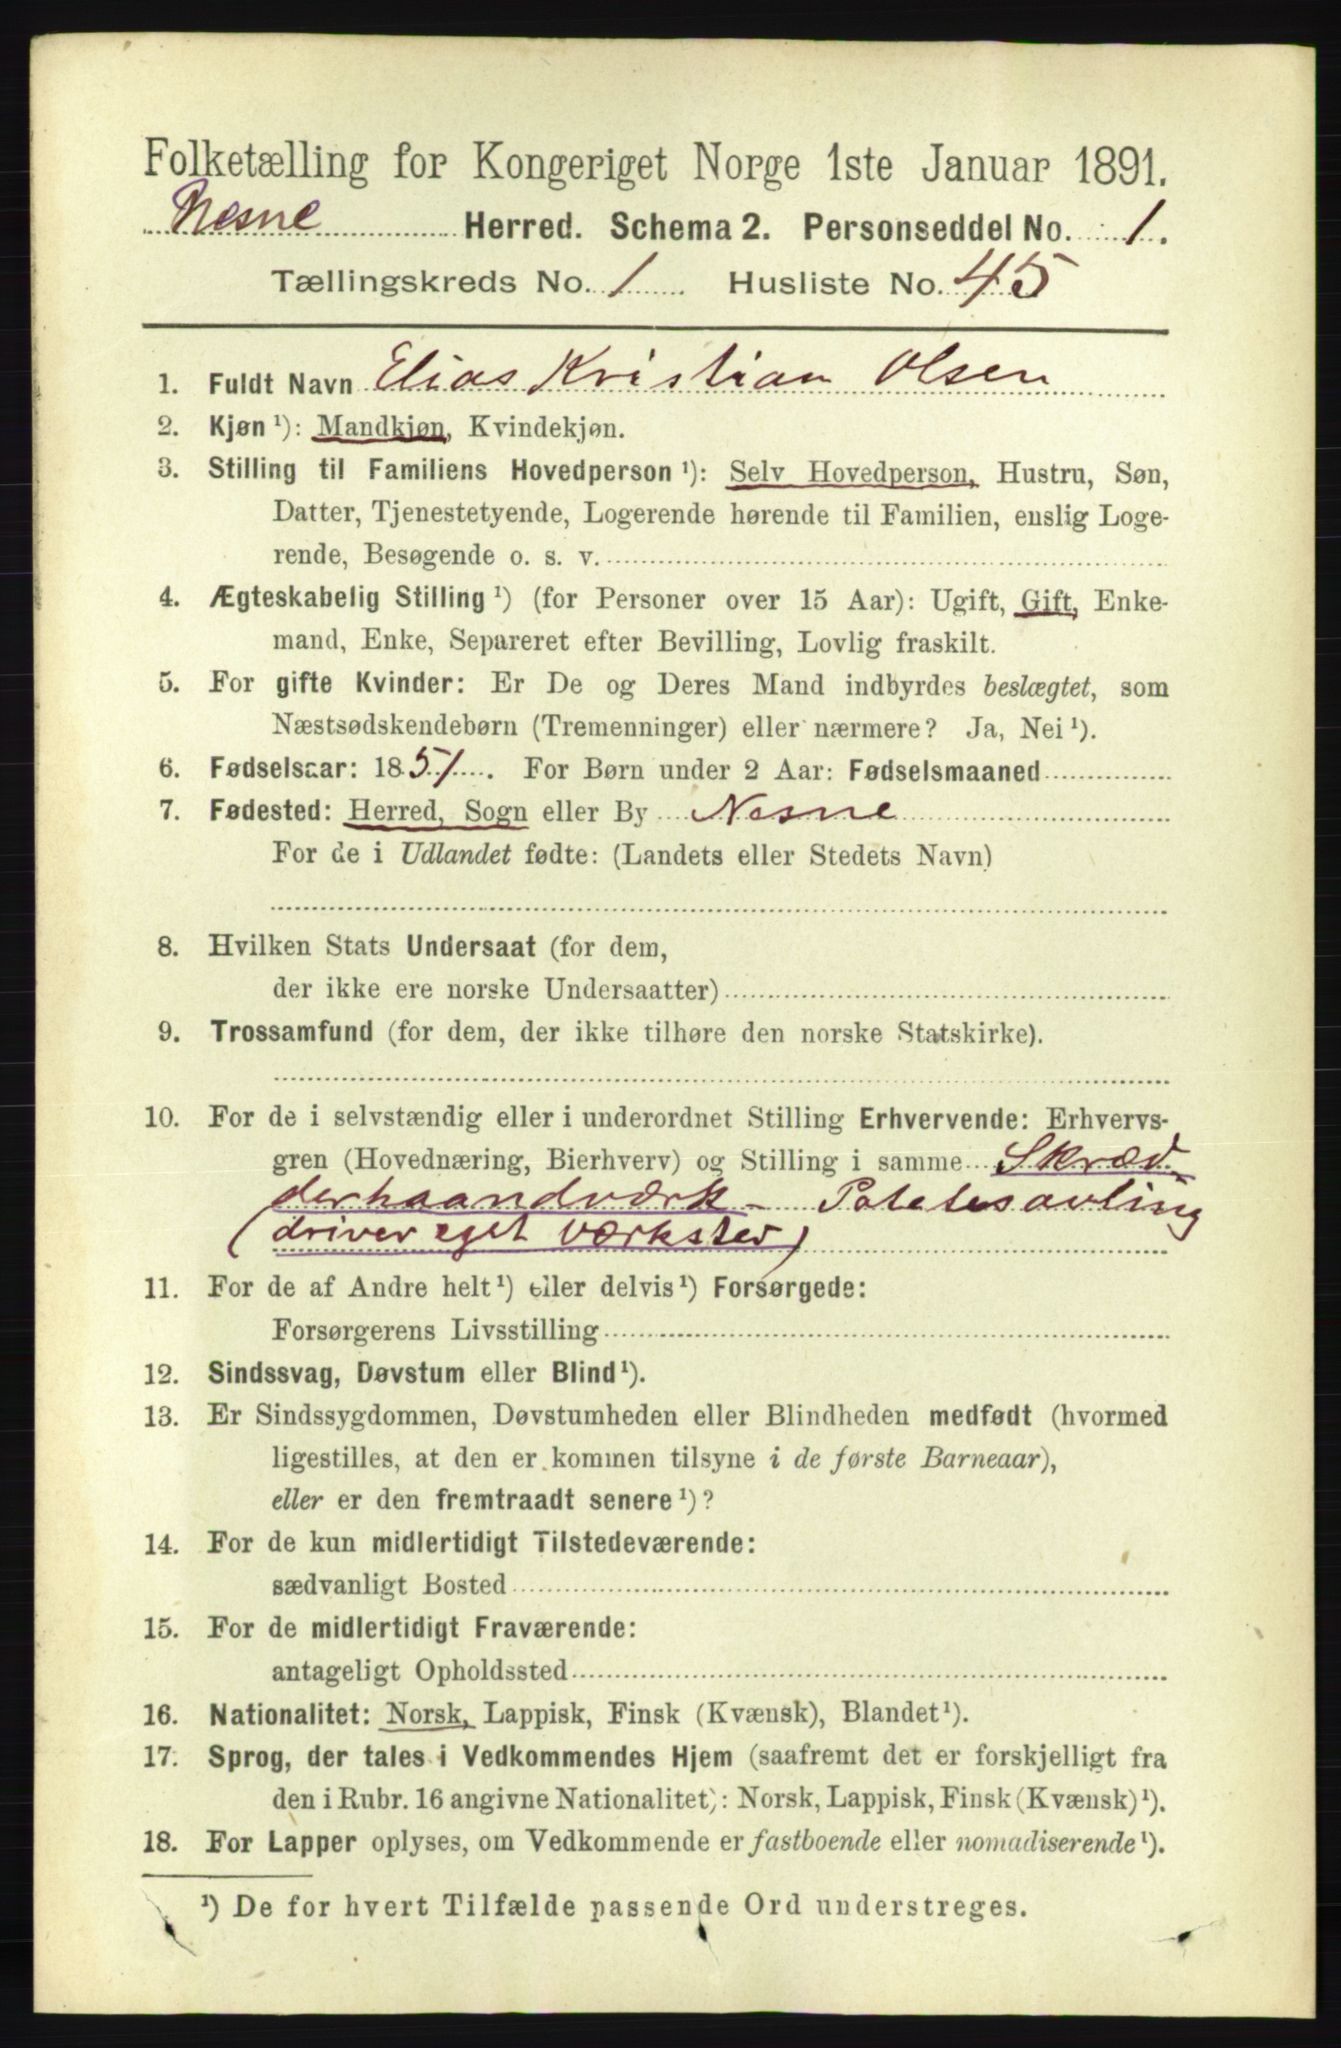 Folketælling for Kongeriget Norge 1ste Januar 1891.
Nesne Herred. Schema 2. Personseddel No. 1.
Tællingskreds No. 1 Husliste No. 45
1. Fuldt Navn Elias Kristian Olsen
2. Kjøn ¹): Mandkjøn, Kvindekjøn.
3. Stilling til Familiens Hovedperson ¹): Selv Hovedperson, Hustru, Søn,
Datter, Tjenestetyende, Logerende hørende til Familien, enslig Loge-
rende, Besøgende o. s. v.
4. Ægteskabelig Stilling ¹) (for Personer over 15 Aar): Ugift, Gift, Enke-
mand, Enke, Separeret efter Bevilling, Lovlig fraskilt.
5. For gifte Kvinder: Er De og Deres Mand indbyrdes beslægtet, som
Næstsødskendebørn (Tremenninger) eller nærmere? Ja, Nei ¹).
6. Fødselsaar: 1851. For Børn under 2 Aar: Fødselsmaaned
7. Fødested: Herred, Sogn eller By Nesne
For de i Udlandet fødte: (Landets eller Stedets Navn)
8. Hvilken Stats Undersaat (for dem,
der ikke ere norske Undersaatter)
9. Trossamfund (for dem, der ikke tilhøre den norske Statskirke).
10. For de i selvstændig eller i underordnet Stilling Erhvervende: Erhvervs-
gren (Hovednæring, Bierhverv) og Stilling i samme Skræd-
derhaandværk - Potetesavling
(driver eget værksted)
11. For de af Andre helt ¹) eller delvis ¹) Forsørgede:
Forsørgerens Livsstilling
12. Sindssvag, Døvstum eller Blind ¹).
13. Er Sindssygdommen, Døvstumheden eller Blindheden medfødt (hvormed
ligestilles, at den er kommen tilsyne i de første Barneaar),
eller er den fremtraadt senere ¹)?
14. For de kun midlertidigt Tilstedeværende:
sædvanligt Bosted
15. For de midlertidigt Fraværende:
antageligt Opholdssted
16. Nationalitet: Norsk, Lappisk, Finsk (Kvænsk), Blandet ¹).
17. Sprog, der tales i Vedkommendes Hjem (saafremt det er forskjelligt fra
den i Rubr. 16 angivne Nationalitet): Norsk, Lappisk, Finsk (Kvænsk) ¹).
18. For Lapper oplyses, om Vedkommende er fastboende eller nomadiserende ¹).
¹) De for hvert Tilfælde passende Ord understreges.